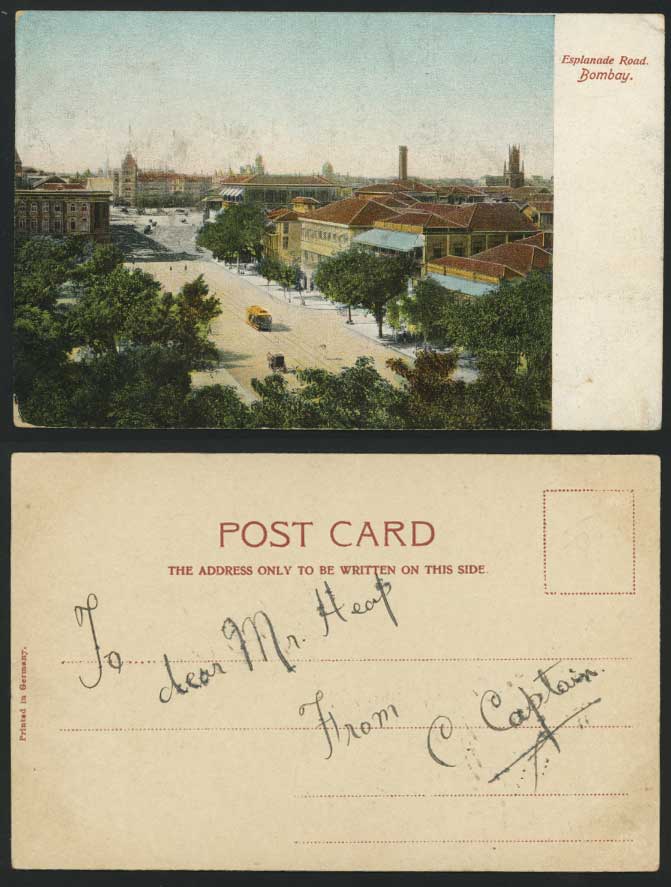 Esplanade Road.
Bombay.
POST CARD
THE ADDRESS ONLY TO BE WRITTEN ON THIS SIDE.
To dear Mr. Heap
From C Captain.
Printed in Germany.